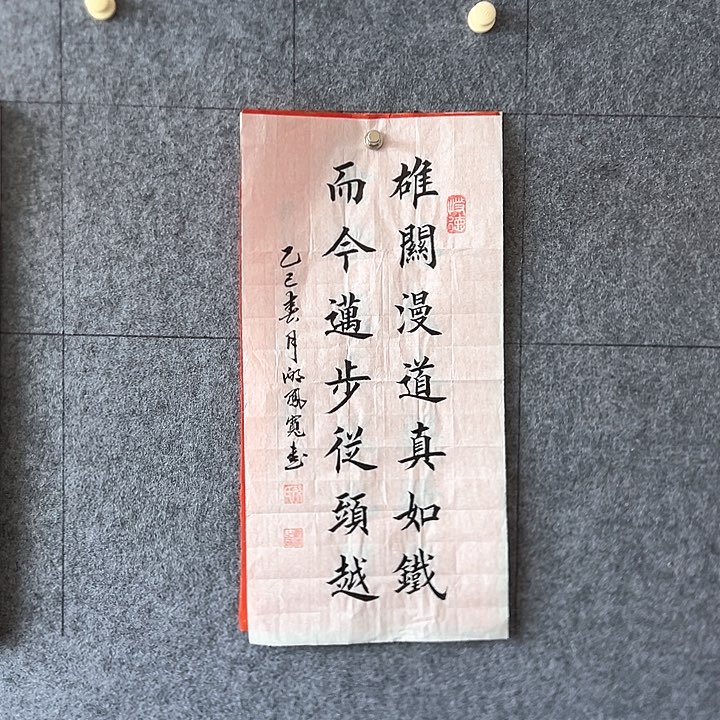 雄關漫道真如鐵
而今邁步從頭越
乙巳春月
鳳寬書